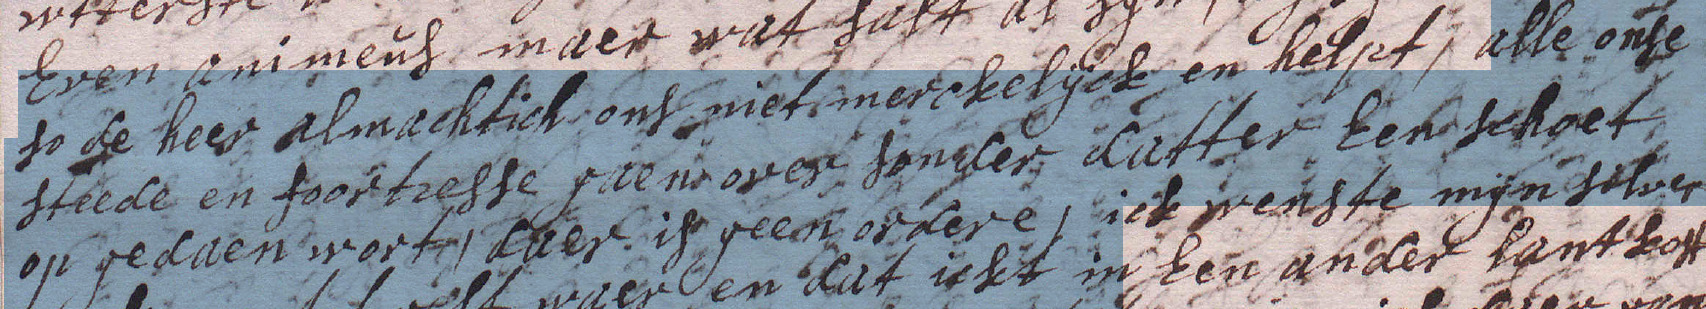 Even animeus maer wat salt al syn
so de heer almachtich ons niet merckelijck en helpt, alle onse
steede en foortresse gaen over sonder datter Een schoet
op gedaen wort, daer is geen ordere, ick wenste mijn silver
waer en dat ickt in Een ander lant kost